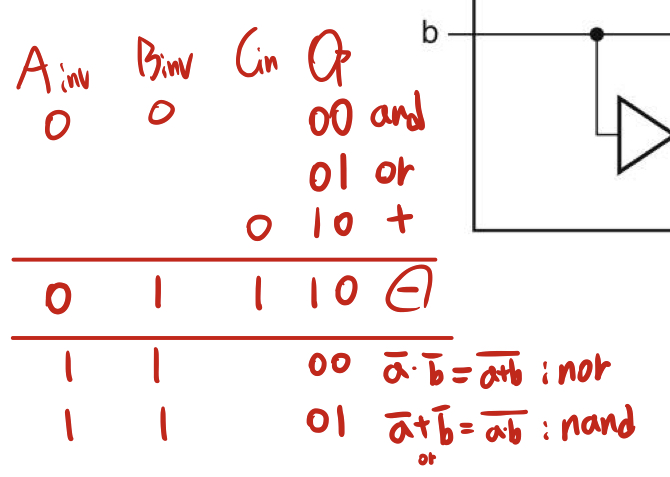 b
Ainv Binv Cin Op
0 0 00 and
01 or
0 10 +
0 1 1 10 -
1 1 00 a̅·b̅ = \overline{a+b} : nor
1 1 01 a̅+b̅ = \overline{a·b} : nand
or